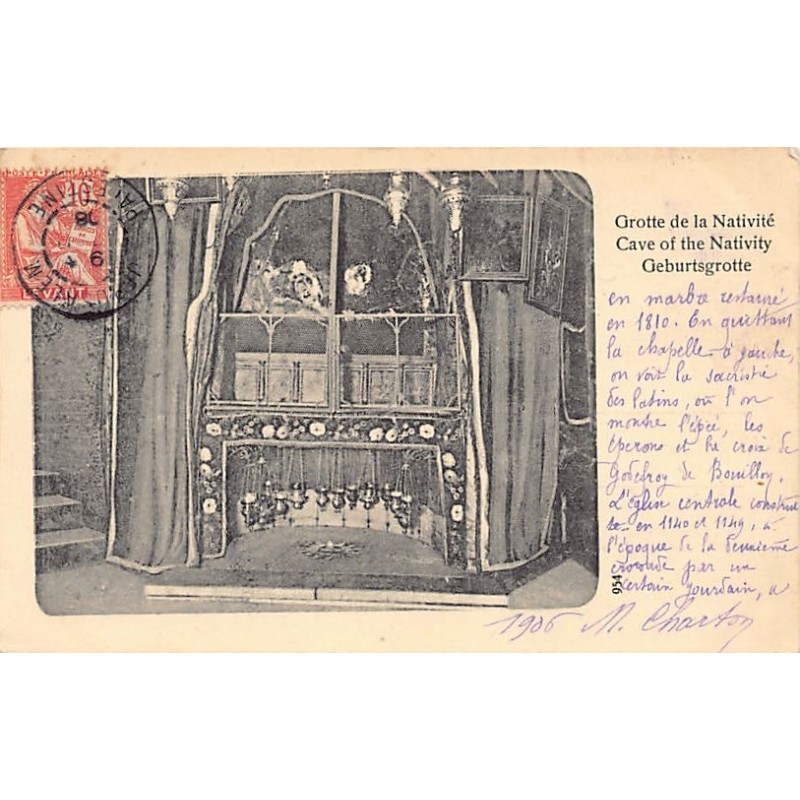 POSTE FRANÇAISE
10
LEVANT
PALESTINE
JERUSALEM
06
Grotte de la Nativité
Cave of the Nativity
Geburtsgrotte
en marbre restauré
en 1810. En quittant
la chapelle à gauche,
on voit la sacristie
des latins, où l'on
montre l'épée, les
éperons et la croix de
Godefroy de Bouillon.
L'Eglise centrale construi
te en 1140 et 1149, à
l'époque de la deuxième
croisade par un
certain Jourdain, a
954
1906 M. Charton